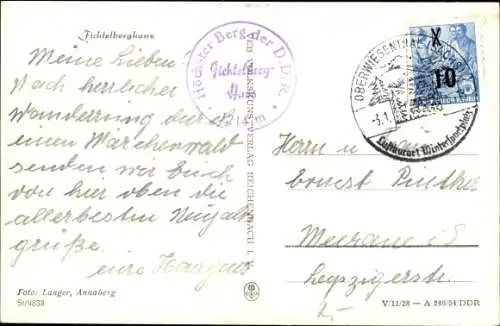 Fichtelberghaus
Meine Lieben!
Nach herrlicher
Wanderung durch
einen Märchenwald
senden wir Euch
von hier oben die
allerbesten Neujahrs
grüße.
Eure
Foto: Langer, Annaberg
Höchster Berg der D.D.R.
Fichtelberg-
Haus
1214 m
VOLKSKUNSTVERLAG REICHENBACH I. V.
OBERWIESENTHAL
Luftkurort Wintersportplatz
X
10
Herrn u.
Ernst
Meerane i/S
Leipzigerstr.
2.-
V/11/28 - A 240/54/DDR